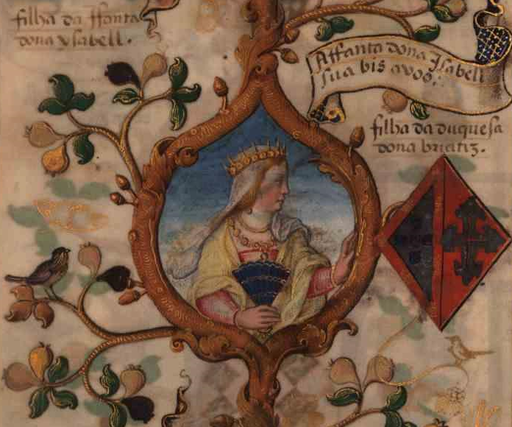 filha da Iffanta
dona ysabell.
Affanta dona Isabell
sua bis avoo.
filha da duquesa
dona briatiz.